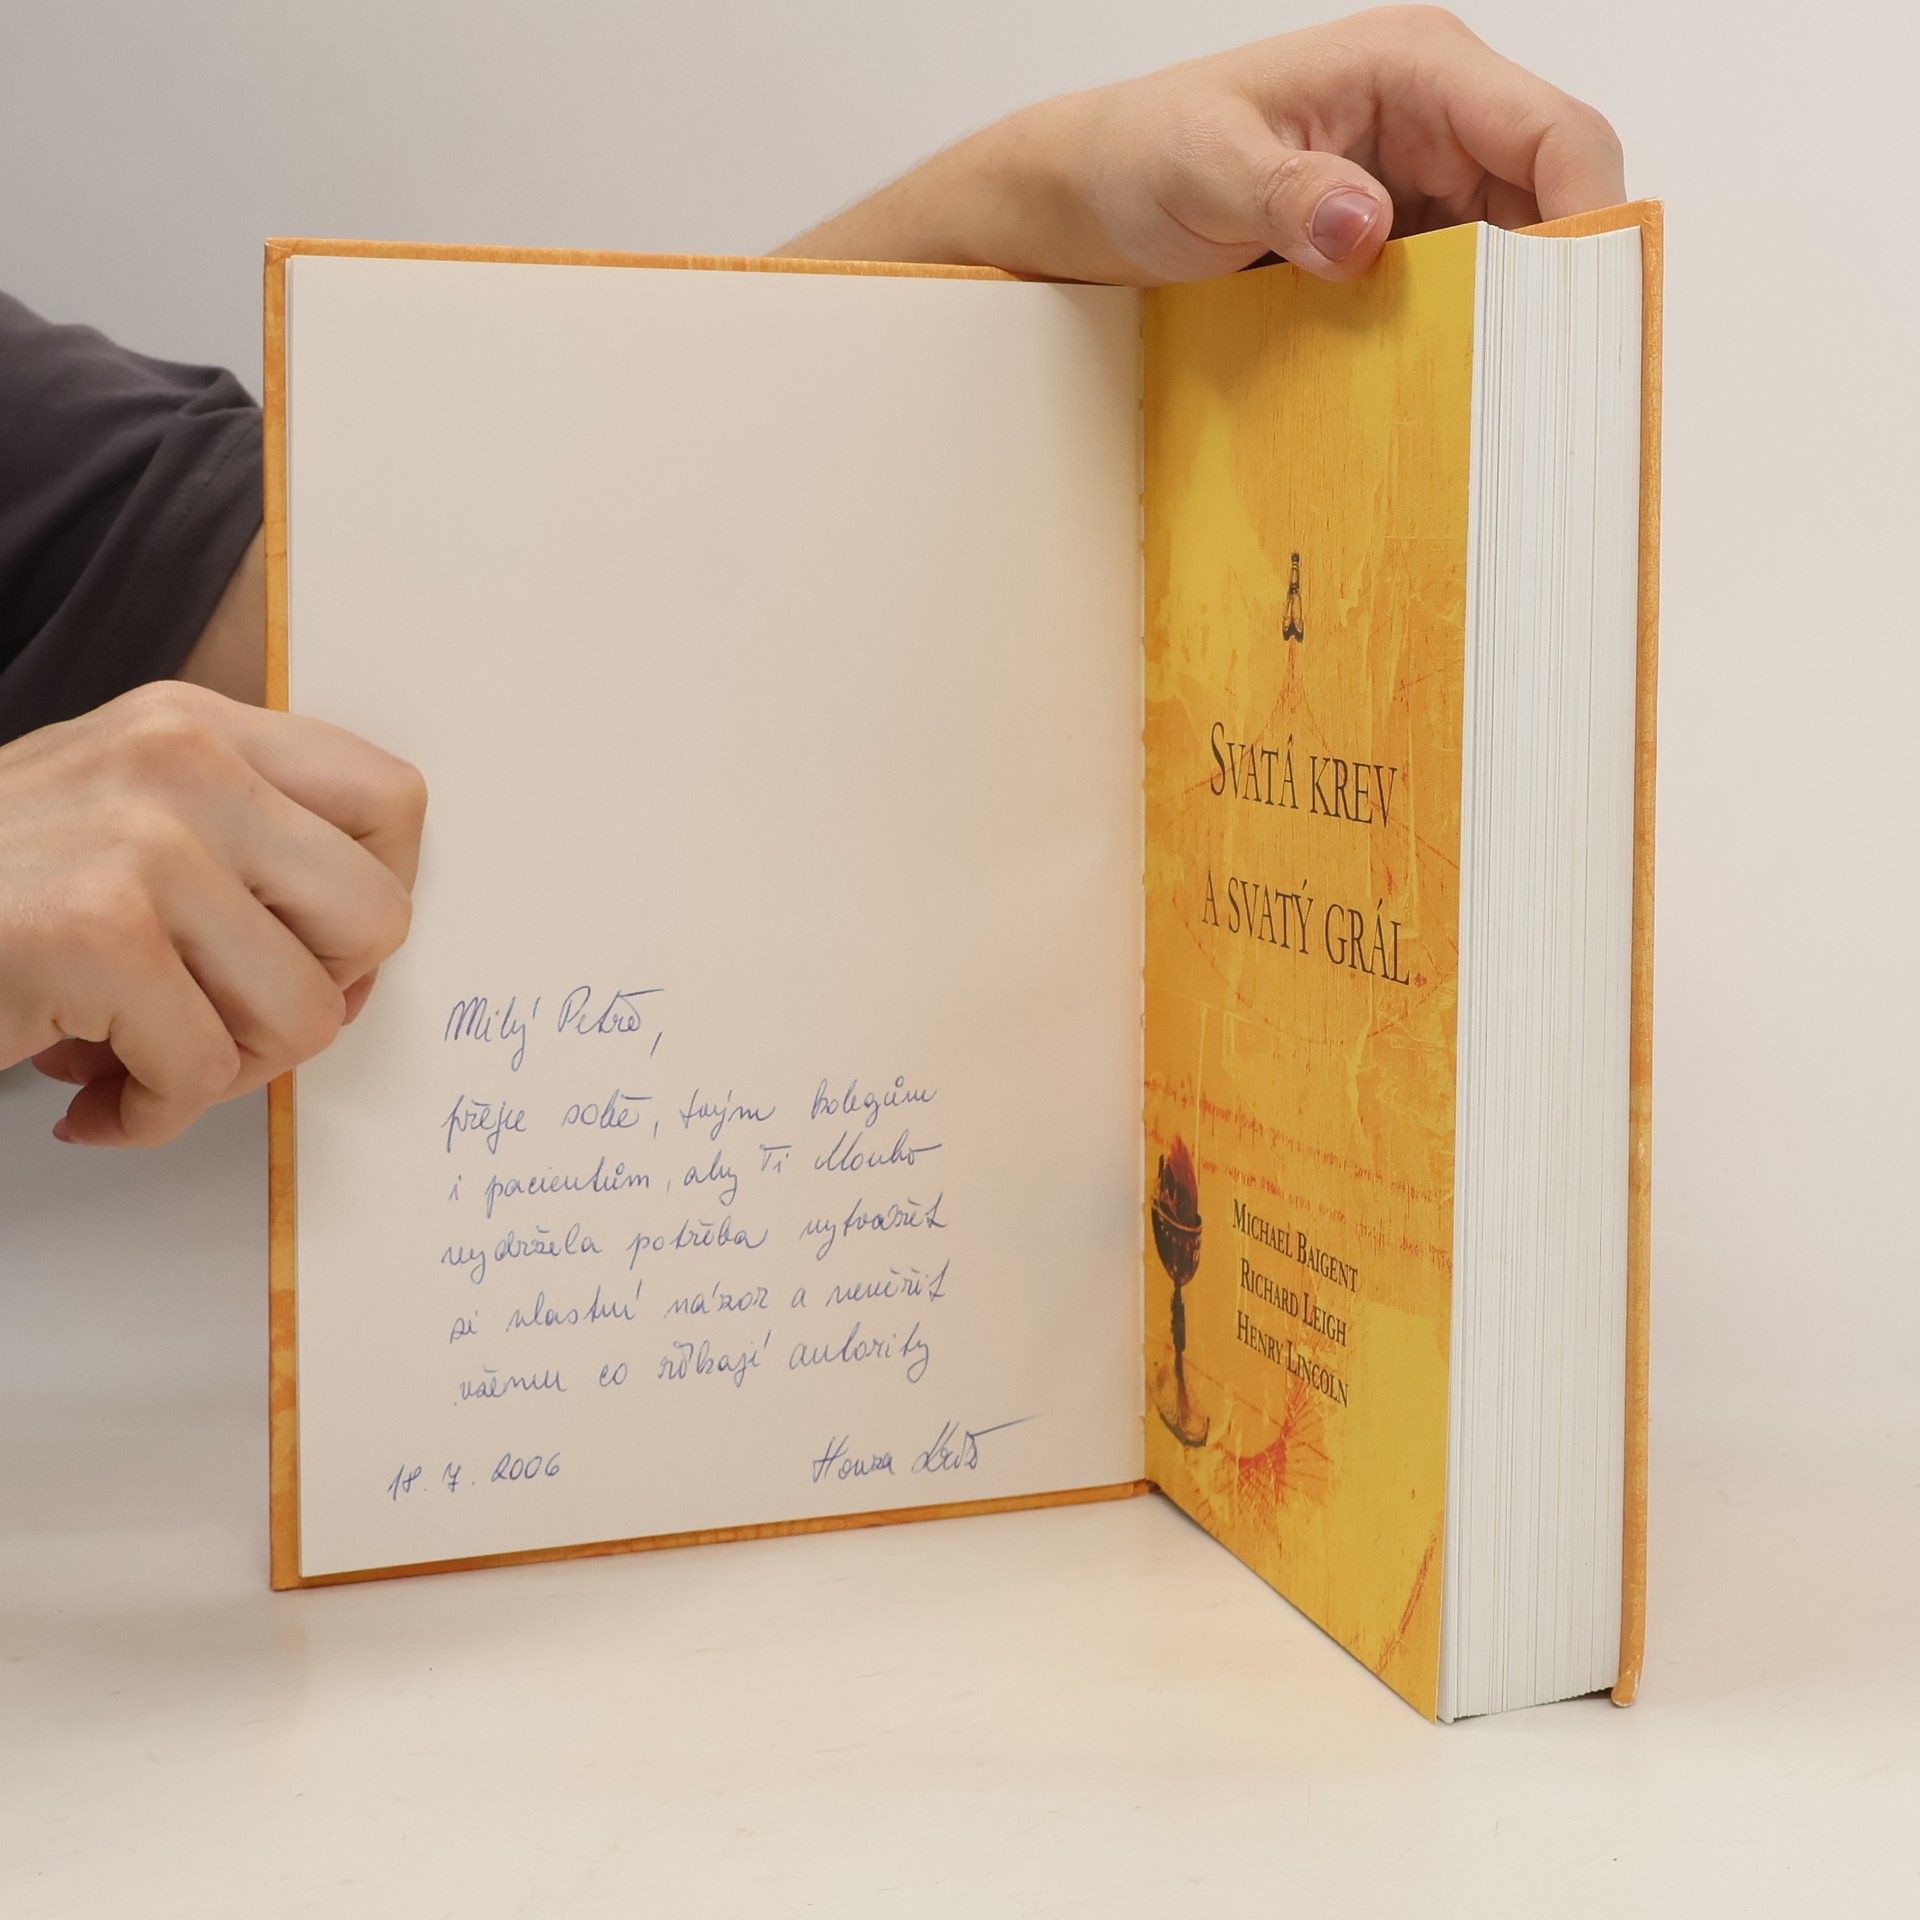 Milý Petře,
přeju sobě, tvým kolegům
i pacientům, aby Ti dlouho
vydržela potřeba vytvářet
si vlastní názor a nevěřit
všemu co říkají autority
18. 7. 2006
Honza
SVATÁ KREV
A SVATÝ GRÁL
MICHAEL BAIGENT
RICHARD LEIGH
HENRY LINCOLN